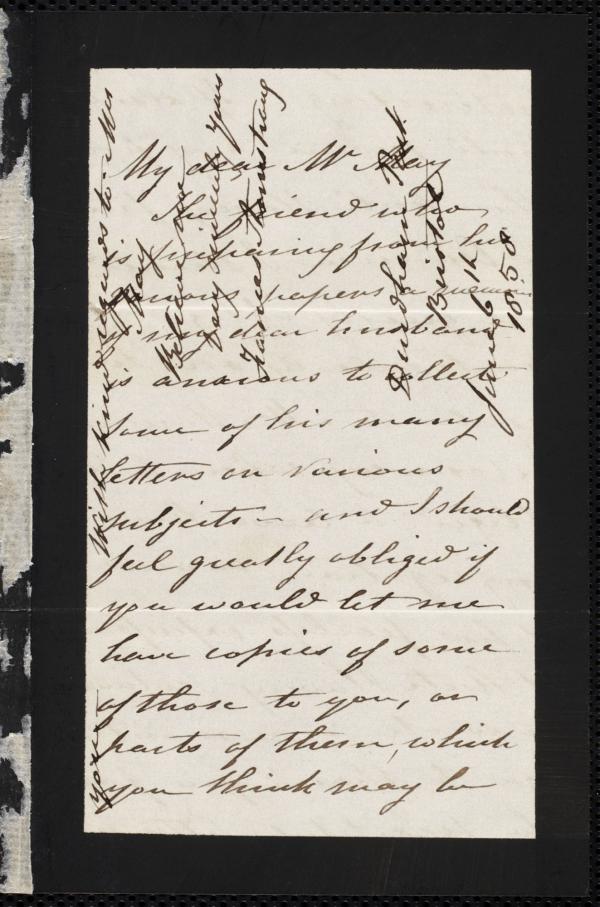 My dear Mr May
The friend who
is preparing from his
various papers a memoir
of my dear husband
is anxious to collect
some of his many
letters on various
subjects - and I should
feel greatly obliged if
you would let me
have copies of some
of those to you, or
parts of them, which
you think may be
Durdham Park
Bristol
June 6th
1858
With kind regards to Mrs
May
Believe me
very sincerely yours
Frances Armstrong